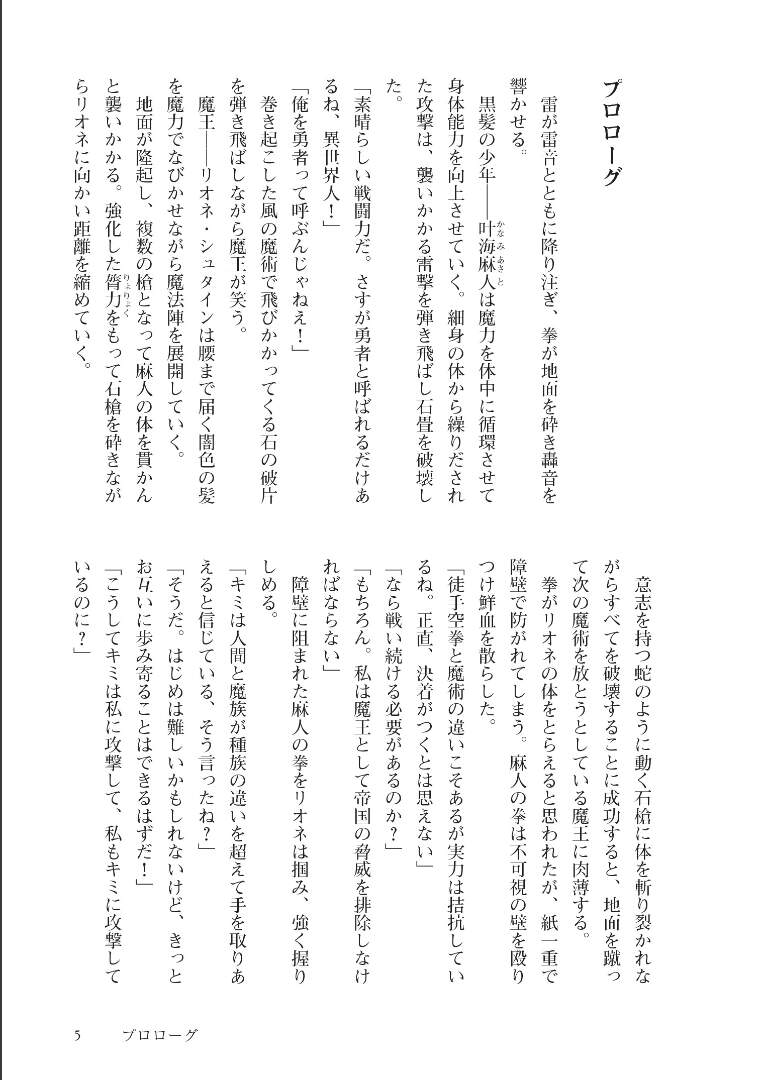 プロローグ
雷が雷音とともに降り注ぎ、拳が地面を砕き轟音を
響かせる。
黒髪の少年――叶海麻人は魔力を体中に循環させて
身体能力を向上させていく。細身の体から繰りだされ
た攻撃は、襲いかかる雷撃を弾き飛ばし石畳を破壊し
た。
「素晴らしい戦闘力だ。さすが勇者と呼ばれるだけあ
るね、異世界人！」
「俺を勇者って呼ぶんじゃねえ！」
巻き起こした風の魔術で飛びかかってくる石の破片
を弾き飛ばしながら魔王が笑う。
魔王――リオネ・シュタインは腰まで届く闇色の髪
を魔力でなびかせながら魔法陣を展開していく。
地面が隆起し、複数の槍となって麻人の体を貫かん
と襲いかかる。強化した膂力をもって石槍を砕きなが
らリオネに向かい距離を縮めていく。
意志を持つ蛇のように動く石槍に体を斬り裂かれな
がらすべてを破壊することに成功すると、地面を蹴っ
て次の魔術を放とうとしている魔王に肉薄する。
拳がリオネの体をとらえると思われたが、紙一重で
障壁で防がれてしまう。麻人の拳は不可視の壁を殴り
つけ鮮血を散らした。
「徒手空拳と魔術の違いこそあるが実力は拮抗してい
るね。正直、決着がつくとは思えない」
「なら戦い続ける必要があるのか？」
「もちろん。私は魔王として帝国の脅威を排除しなけ
ればならない」
障壁に阻まれた麻人の拳をリオネは掴み、強く握り
しめる。
「キミは人間と魔族が種族の違いを超えて手を取りあ
えると信じている、そう言ったね？」
「そうだ。はじめは難しいかもしれないけど、きっと
お互いに歩み寄ることはできるはずだ！」
「こうしてキミは私に攻撃して、私もキミに攻撃して
いるのに？」
5　プロローグ